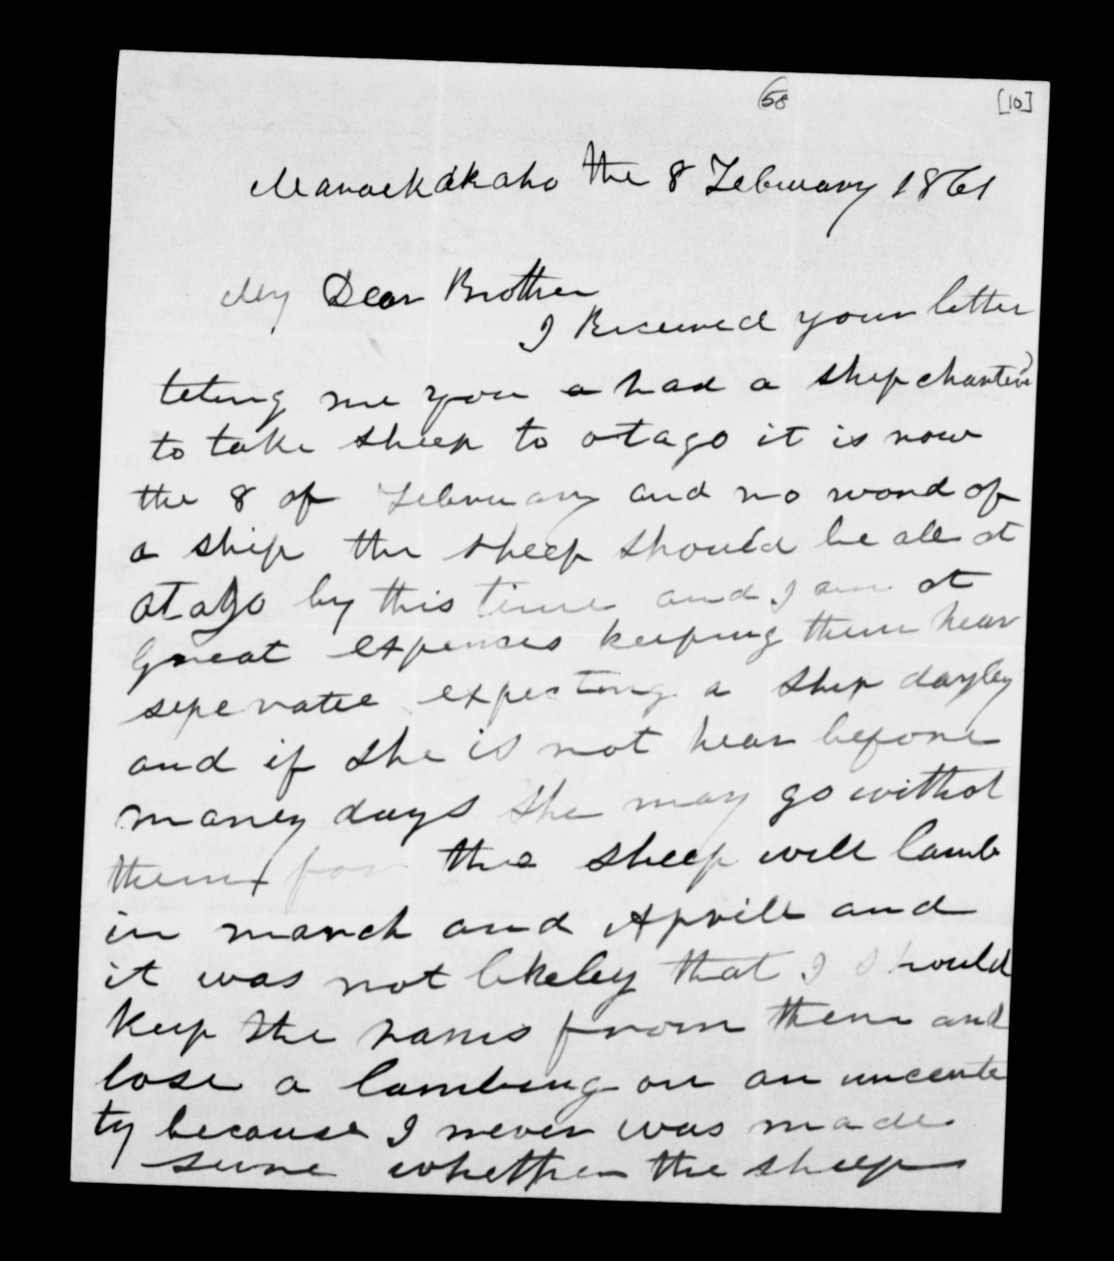 58 [10]
Maraekakaho the 8 February 1861
My Dear Brother
I Received your letter
teting me you a had a ship charterd
to take sheep to otago it is now
the 8 of February and no word of
a ship the sheep should be all at
otago by this time and I am at
Great expences keeping them hear
seperatee expecting a ship dayley
and if she is not hear before
maney days she may go withot
them for the sheep will lamb
in march and Aprill and
it was not likeley that I should
keep the rams from them and
lose a lambing on an uncente
ty because I never was made
sure whether the sheep